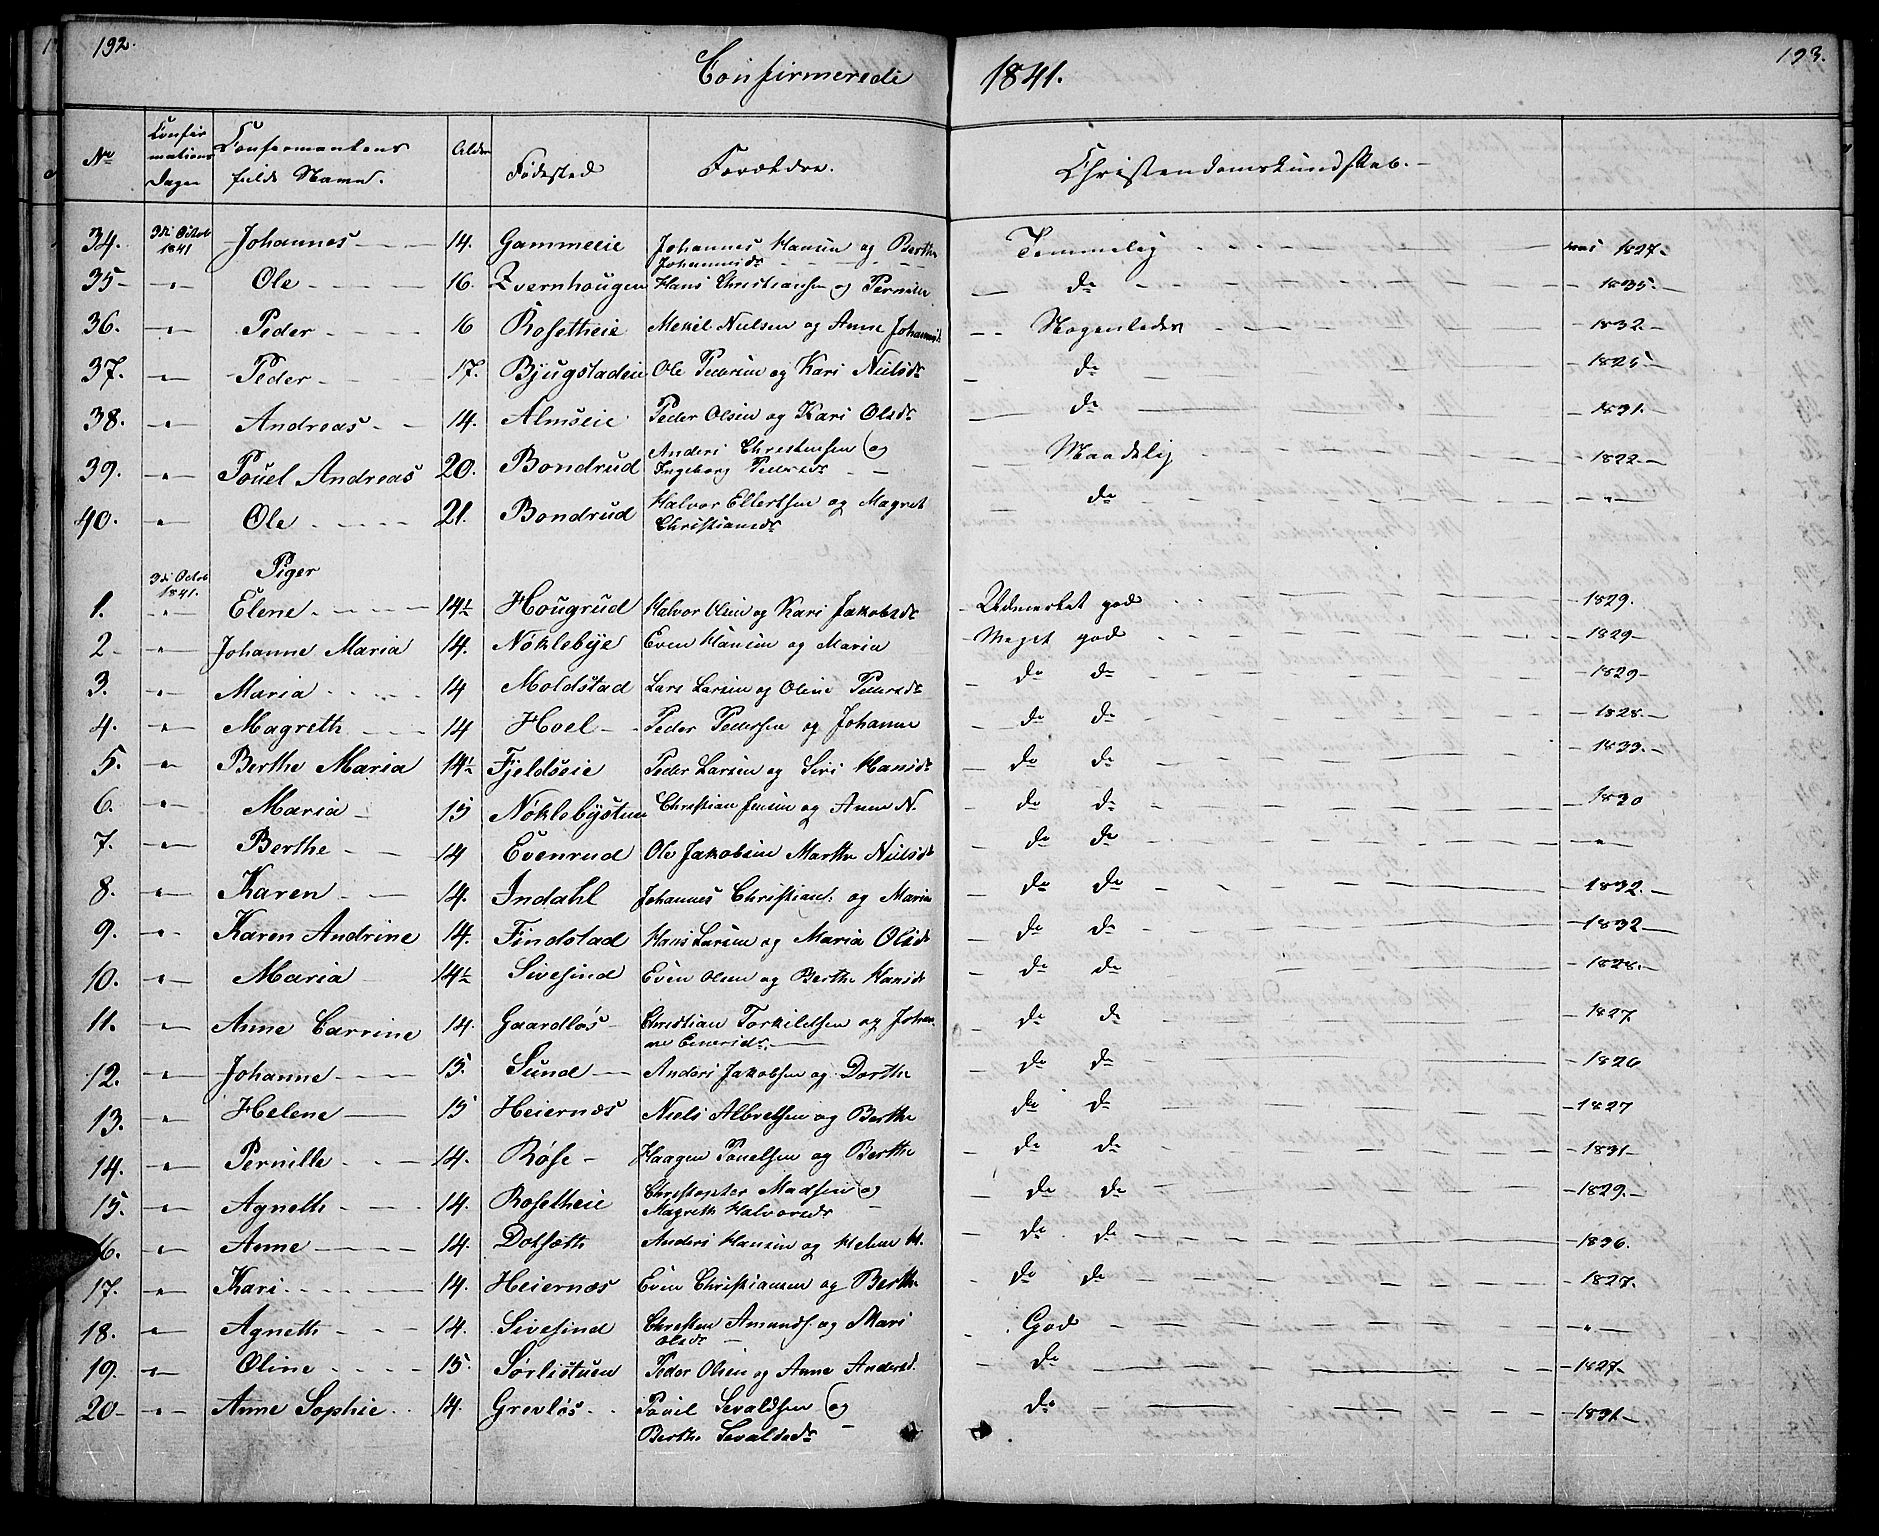 192.
Confirmerede 1841.
193.
No Confirmations Dagen Confirmantens fulde Navn. Alder Fødested Forældre. Christendomskundskab.
34. 3di Octob 1841 Johannes 14. Gammeeie Johannes Hansen og Berthe Johannesdr Temmelig 1827
35 " Ole 16. Hans Christiansen og Pernille do 1835
36. " Peder 16 Rosetheie Mekil Nielsen og Anne Johannesdr Nogenledes 1832
37. " Peder 17. Bjugstadeie Ole Pedersen og Kari Nielsdr do 1825
38. " Andreas 14. Almseie Peder Olsen og Kari Olsdr do 1831.
39. " Pouel Andreas 20. Bondrud Anders Christensen og Ingeborg Pedersdr Maadelig 1822
40. " Ole 21. Bondrud Halvor Ellertsen og Magret Christiansdr do "
3di Octob 1841. Piger
1. " Elene 14½ Hougrud Halvor Olsen og Kari Jakobsdr Udmerket god 1829.
2 " Johanne Maria 14. Nøklebye Even Hansen og Maria Meget god 1829
3. " Maria 14 Moldstad Lars Larsen og Oline Pedersdr do do 1829
4. " Magreth 14 Hoel Peder Pedersen og Johanne do do 1828.
5. " Berthe Maria 14½ Fjeldseie Peder Larsen og Siri Hansdr do do 1833.
6. " Maria 15 Nøklebystuen Christian Jensen og Anne N. do do 1830
7. " Berthe 14 Evenrud Ole Jakobsen Marthe Nielsdr do do "
8. " Karen 14. Indahl Johannes Christians: og Marie do do 1832.
9. " Karen Andrine 14. Findstad Hans Larsen og Maria Olsdr do do 1832
10. " Maria 14½ Sivesind Even Olsen og Berthe Hansdr do do 1828.
11. " Anne Carrine 14. Gaardløs Christian Torkildsen og Johanne Einersdr do do 1827
12. " Johanne 15. Sund Anders Jakobsen og Dorthe do do 1826
13. " Helene 15 Heiernæs Niels Albretsen og Berthe do do 1827
14. " Pernille 14. Røse Haagen Pouelsen og Berthe do do 1831
15. " Agnethe 14. Rosetheie Christopher Madsen og Magreth Halvorsdr do do 1829.
16. " Anne 14. Dotseth Anders Hansen og Helene H. do do 1836.
17. " Kari 14. Heiernæs Even Christiansen og Berthe do do 1827.
18. " Agneth 14. Sivesind Christen Amunds. og Mari Olsdr God "
19. " Oline 15. Sørlistuen Peder Olsen og Anne Andersd. do 1827
20 " Anne Sophie 14. Grevløs Pouel Sevaldsen og Berthe Sevaldsdr do 1831